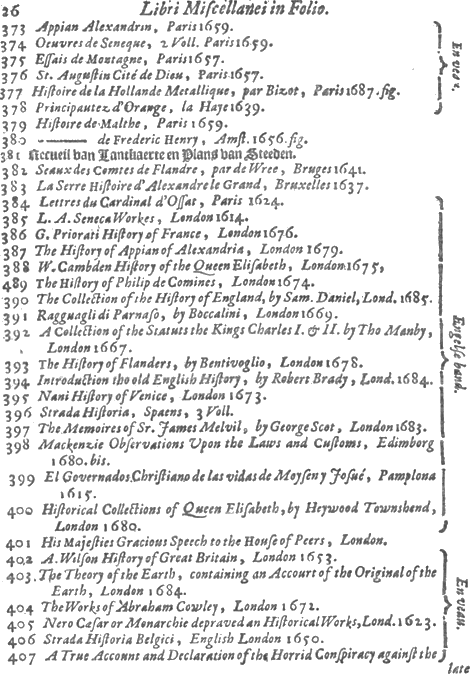 26 Libri Miſcellanei in Folio.
373 Appian Alexandrin, Paris 1659.
374 Oeuvres de Seneque, 2 Voll. Paris 1659.
375 Eſſais de Montagne, Paris 1657.
376 St. Auguſtin Cité de Dieu, Paris 1657.
377 Hiſtoire de la Hollande Metallique, par Bizot, Paris 1687. fig.
378 Principautez d'Orange, la Haye 1639.
En veau.
379 Hiſtoire de Malthe, Paris 1659.
380 ——— de Frederic Henry, Amſt. 1656. fig.
381 Accueil van Lantkaerte en Plans van Steeden.
382 Seaux des Comtes de Flandre, par de Wree, Bruges 1641.
383 La Serre Hiſtoire d'Alexandre le Grand, Bruxelles 1637.
384 Lettres du Cardinal d'Oſſat, Paris 1624.
385 L. A. Seneca Workes, London 1614.
386 G. Priorati Hiſtory of France, London 1676.
387 The Hiſtory of Appian of Alexandria, London 1679.
388 W. Cambden Hiſtory of the Queen Eliſabeth, London 1675,
489 The Hiſtory of Philip de Comines, London 1674.
390 The Collection of the Hiſtory of England, by Sam. Daniel, Lond. 1685.
391 Ragguagli di Parnaſo, by Boccalini, London 1669.
392 A Collection of the Statuts the Kings Charles I. & II. by Tho Manby,
London 1667.
393 The Hiſtory of Flanders, by Bentivoglio, London 1678.
394 Introduction tho old Engliſh Hiſtory, by Robert Brady, Lond. 1684.
395 Nani Hiſtory of Venice, London 1673.
396 Strada Hiſtoria, Spaens, 3 Voll.
397 The Memoires of Sr. James Melvil, by George Scot, London 1683.
398 Mackenzie Obſervations Upon the Laws and Cuſtoms, Edimborg
1680. bis.
399 El Governados Chriſtiano de las vidas de Moyſen y Joſué, Pamplona
1615.
400 Hiſtorical Collections of Queen Eliſabeth, by Heywood Townshend,
London 1680.
Engelſe band.
401 His Majeſties Gracious Speech to the Houſe of Peers, London.
402 A. Wilſon Hiſtory of Great Britain, London 1653.
403. The Theory of the Earth, containing an Accourt of the Original of the
Earth, London 1684.
404 The Works of Abraham Cowley, London 1672.
405 Nero Cæſar or Monarchie depraved an Hiſtorical Works, Lond. 1623.
406 Strada Hiſtoria Belgici, Engliſh London 1650.
407 A True Account and Declaration of the Horrid Conſpiracy againſt the
En veau.
late